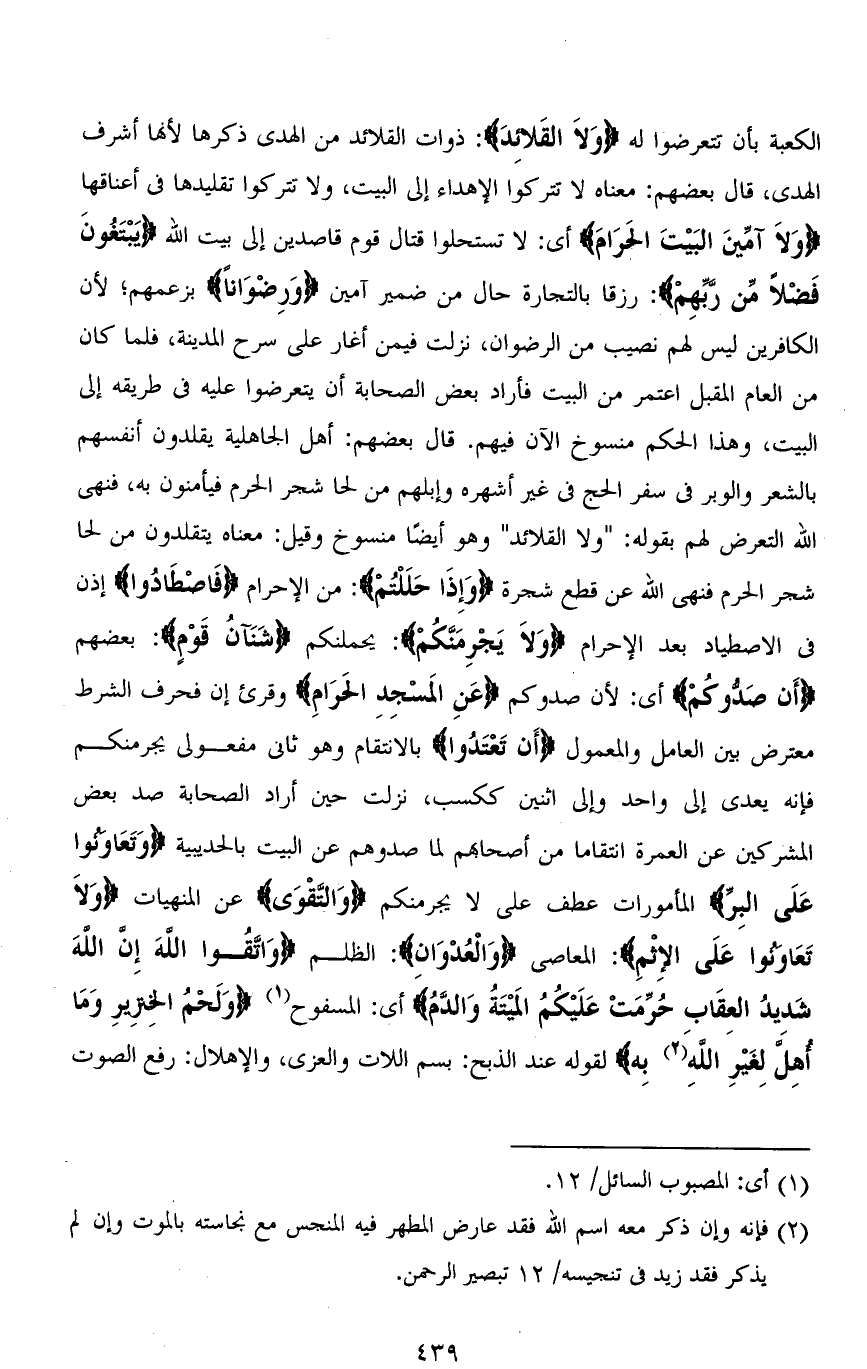 الكعبة بأن تتعرضوا له ﴿وَلاَ القَلائِدَ﴾: ذوات القلائد من الهدى ذكرها لأنها أشرف
الهدى، قال بعضهم: معناه لا تتركوا الإهداء إلى البيت، ولا تتركوا تقليدها فى أعناقها
﴿وَلاَ آمِّينَ البَيْتَ الحَرَامَ﴾ أى: لا تستحلوا قتال قوم قاصدين إلى بيت الله ﴿يَبْتَغُونَ
فَضْلاً مِّن رَّبِّهِمْ﴾: رزقا بالتجارة حال من ضمير آمين ﴿وَرِضْوَاناً﴾ بزعمهم؛ لأن
الكافرين ليس لهم نصيب من الرضوان، نزلت فيمن أغار على سرح المدينة، فلما كان
من العام المقبل اعتمر من البيت فأراد بعض الصحابة أن يتعرضوا عليه فى طريقه إلى
البيت، وهذا الحكم منسوخ الآن فيهم. قال بعضهم: أهل الجاهلية يقلدون أنفسهم
بالشعر والوبر فى سفر الحج فى غير أشهره وإبلهم من لحا شجر الحرم فيأمنون به، فنهى
الله التعرض لهم بقوله: "ولا القلائد" وهو أيضًا منسوخ وقيل: معناه يتقلدون من لحا
شجر الحرم فنهى الله عن قطع شجرة ﴿وَإِذَا حَلَلْتُمْ﴾: من الإحرام ﴿فَاصْطَادُوا﴾ إذن
فى الاصطياد بعد الإحرام ﴿وَلاَ يَجْرِمَنَّكُمْ﴾: يحملنكم ﴿شَنَآنُ قَوْمٍ﴾: بعضهم
﴿أَن صَدُّوكُمْ﴾ أى: لأن صدوكم ﴿عَنِ المَسْجِدِ الحَرَامِ﴾ وقرئ إن فحرف الشرط
معترض بين العامل والمعمول ﴿أَن تَعْتَدُوا﴾ بالانتقام وهو ثانى مفعـولى يجرمنكـم
فإنه يعدى إلى واحد وإلى اثنين ككسب، نزلت حين أراد الصحابة صد بعض
المشركين عن العمرة انتقاما من أصحابهم لما صدوهم عن البيت بالحديبية ﴿وَتَعَاوَنُوا
عَلَى البِرِّ﴾ المأمورات عطف على لا يجرمنكم ﴿وَالتَّقْوَى﴾ عن المنهيات ﴿وَلاَ
تَعَاوَنُوا عَلَى الإِثْمِ﴾: المعاصى ﴿وَالْعُدْوَانِ﴾: الظلـم ﴿وَاتَّقُـوا اللَّهَ إِنَّ اللَّهَ
شَدِيدُ العِقَابِ حُرِّمَتْ عَلَيْكُمُ المَيْتَةُ وَالدَّمُ﴾ أى: المسفوح(١) ﴿وَلَحْمُ الخِنزِيرِ وَمَا
أُهِلَّ لِغَيْرِ اللَّهِ(٢) بِه﴾ لقوله عند الذبح: بسم اللات والعزى، والإهلال: رفع الصوت
(١) أى: المصبوب السائل/ ١٢.
(٢) فإنه وإن ذكر معه اسم الله فقد عارض المطهر فيه المنجس مع نجاسته بالموت وإن لم
يذكر فقد زيد فى تنجيسه/ ١٢ تبصير الرحمن.
٤٣٩